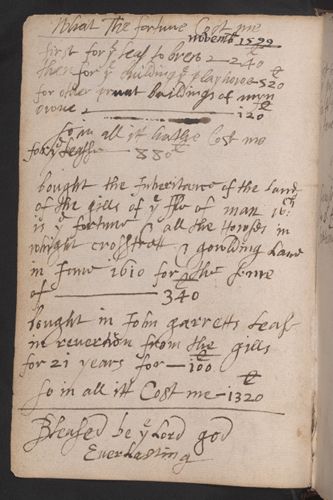 What The fortune Cost me
novemb 1599
first for yᵉ leas to brew - 240
then for yᵉ building yᵉ playhowse - 520
for other privat buildings of myn
owne - 120
so in all itt hathe Cost me
for yᵉ leasse - 880
bought the Inheritance of the Land
of the gills of yᵉ Ile of man wᶜʰ
is yᵉ fortune & all the howses in
whight crosstrett & gowlding Lane
in June 1610 for the some
of - 340
bought in John garretts Leas
in revertion from the gills
for 21 years for - 100
so in all itt Cost me - 1320
Blessed be yᵉ Lord god
Everlasting